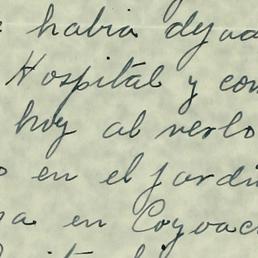 había dejad
Hospital y con
hoy al verlo
en el jardí
en Coyoac